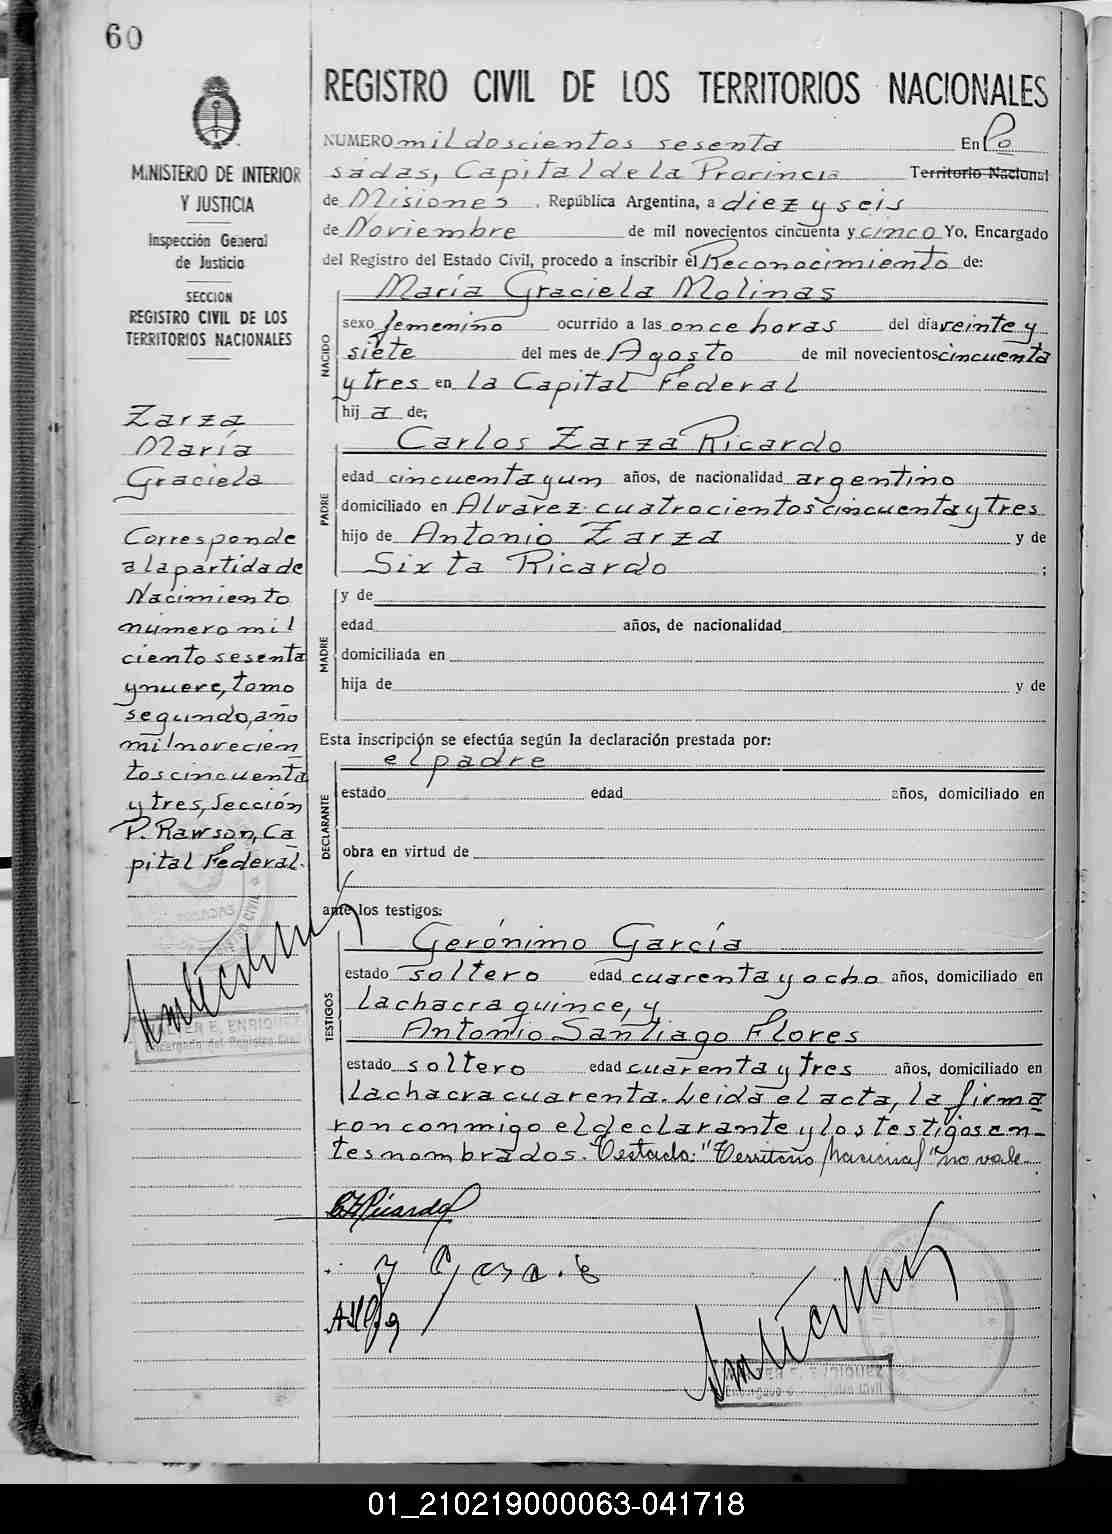 60
REGISTRO CIVIL DE LOS TERRITORIOS NACIONALES
MINISTERIO DE INTERIOR
Y JUSTICIA
Inspección General
de Justicia
SECCION
REGISTRO CIVIL DE LOS
TERRITORIOS NACIONALES
Zarza
María
Graciela
Corresponde
a la partida de
Nacimiento
número mil
ciento sesenta
y nueve, tomo
segundo, año
mil novecien
tos cincuenta
y tres, Sección
P. Rawson, Ca
pital Federal.
WALTER E. ENRIQUEZ
Encargado del Registro Civil
NUMERO mil doscientos sesenta En Po
sadas, Capital de la Provincia Territorio Nacional
de Misiones, República Argentina, a diez y seis
de Noviembre de mil novecientos cincuenta y cinco Yo, Encargado
del Registro del Estado Civil, procedo a inscribir el Reconocimiento de:
María Graciela Molinas
NACIDO
sexo femenino ocurrido a las once horas del día veinte y
siete del mes de Agosto de mil novecientos cincuenta
y tres en la Capital Federal
hij a de;
Carlos Zarza Ricardo
PADRE
edad cincuenta y un años, de nacionalidad argentino
domiciliado en Alvarez cuatrocientos cincuenta y tres
hijo de Antonio Zarza y de
Sixta Ricardo ;
MADRE
y de
edad años, de nacionalidad
domiciliada en
hija de y de
Esta inscripción se efectúa según la declaración prestada por:
el padre
DECLARANTE
estado edad años, domiciliado en
obra en virtud de
ante los testigos:
Gerónimo García
TESTIGOS
estado soltero edad cuarenta y ocho años, domiciliado en
la chacra quince, y
Antonio Santiago Flores
estado soltero edad cuarenta y tres años, domiciliado en
la chacra cuarenta. Leída el acta, la firma
ron conmigo el declarante y los testigos an-
tes nombrados. Testado: "Territorio Nacional" no vale.
WALTER E. ENRIQUEZ
01_210219000063-041718